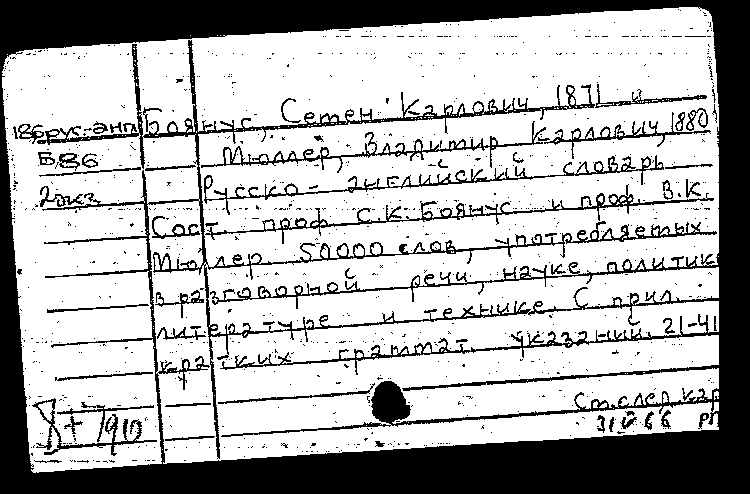 186рус-англ Боянус, Семен Карлович, 1871 и
Б86 Мюллер, Владимир Карлович, 1880
2 экз Русско-английский словарь
Сост. проф. С.К. Боянус и проф. В.К.
Мюллер. 50000 слов, употребляемых
в разговорной речи, науке, политик
литературе и технике. С прил.
кратких граммат. указаний. 21-41
См.след.кар